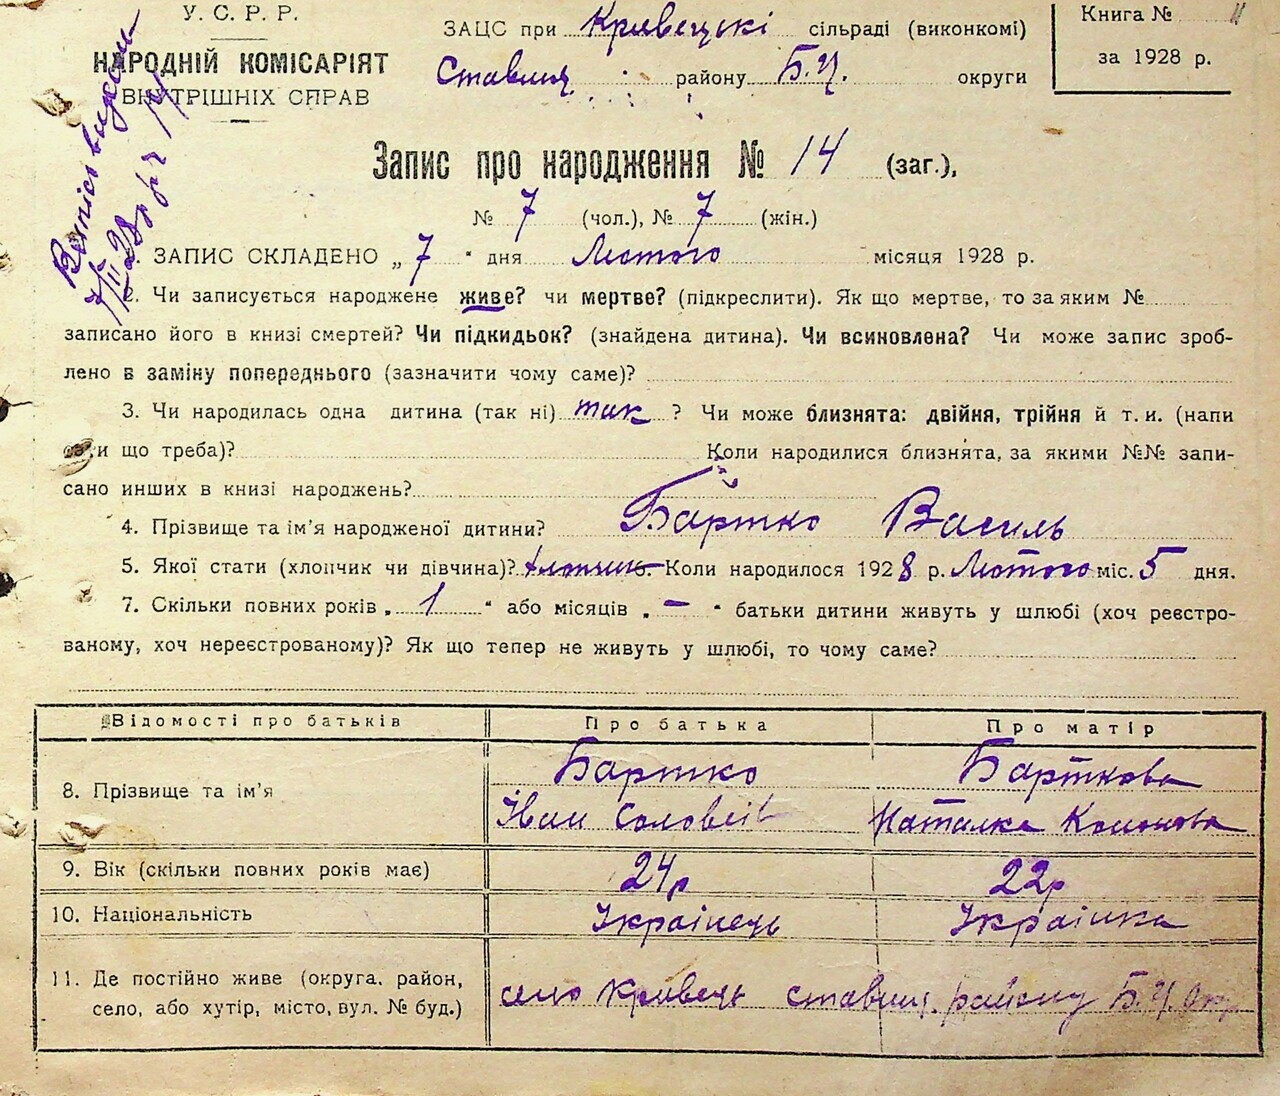 У. С. Р. Р.
НАРОДНІЙ КОМІСАРІЯТ
ВНУТРІШНІХ СПРАВ
ЗАЦС при Кривецькі сільраді (виконкомі)
Ставищ. району Б.Ц. округи
Книга №
за 1928 р.
Запис про народження № 14 (заг.),
№ 7 (чол.), № 7 (жін.)
ЗАПИС СКЛАДЕНО „ 7 " дня Лютого місяця 1928 р.
2. Чи записується народжене живе? чи мертве? (підкреслити). Як що мертве, то за яким №
записано його в книзі смертей? Чи підкидьок? (знайдена дитина). Чи всиновлена? Чи може запис зроб-
лено в заміну попереднього (зазначити чому саме)?
3. Чи народилась одна дитина (так ні) так ? Чи може близнята: двійня, трійня й т. и. (напи
сати що треба)? Коли народилися близнята, за якими №№ запи-
сано инших в книзі народжень?
4. Прізвище та ім'я народженої дитини? Бартко Василь
5. Якої стати (хлопчик чи дівчина)? хлопчик 6. Коли народилося 1928 р. Лютого міс. 5 дня.
7. Скільки повних років „ 1 " або місяців „ – " батьки дитини живуть у шлюбі (хоч реєстро-
ваному, хоч нереєстрованому)? Як що тепер не живуть у шлюбі, то чому саме?
Відомості про батьків Про батька Про матір
8. Прізвище та ім'я Бартко Барткова
Іван Наталка
9. Вік (скільки повних років має) 24р 22р
10. Національність Українець Українка
11. Де постійно живе (округа, район,
село, або хутір, місто, вул. № буд.) село Кривець ставищ. району Б.Ц. Окр.